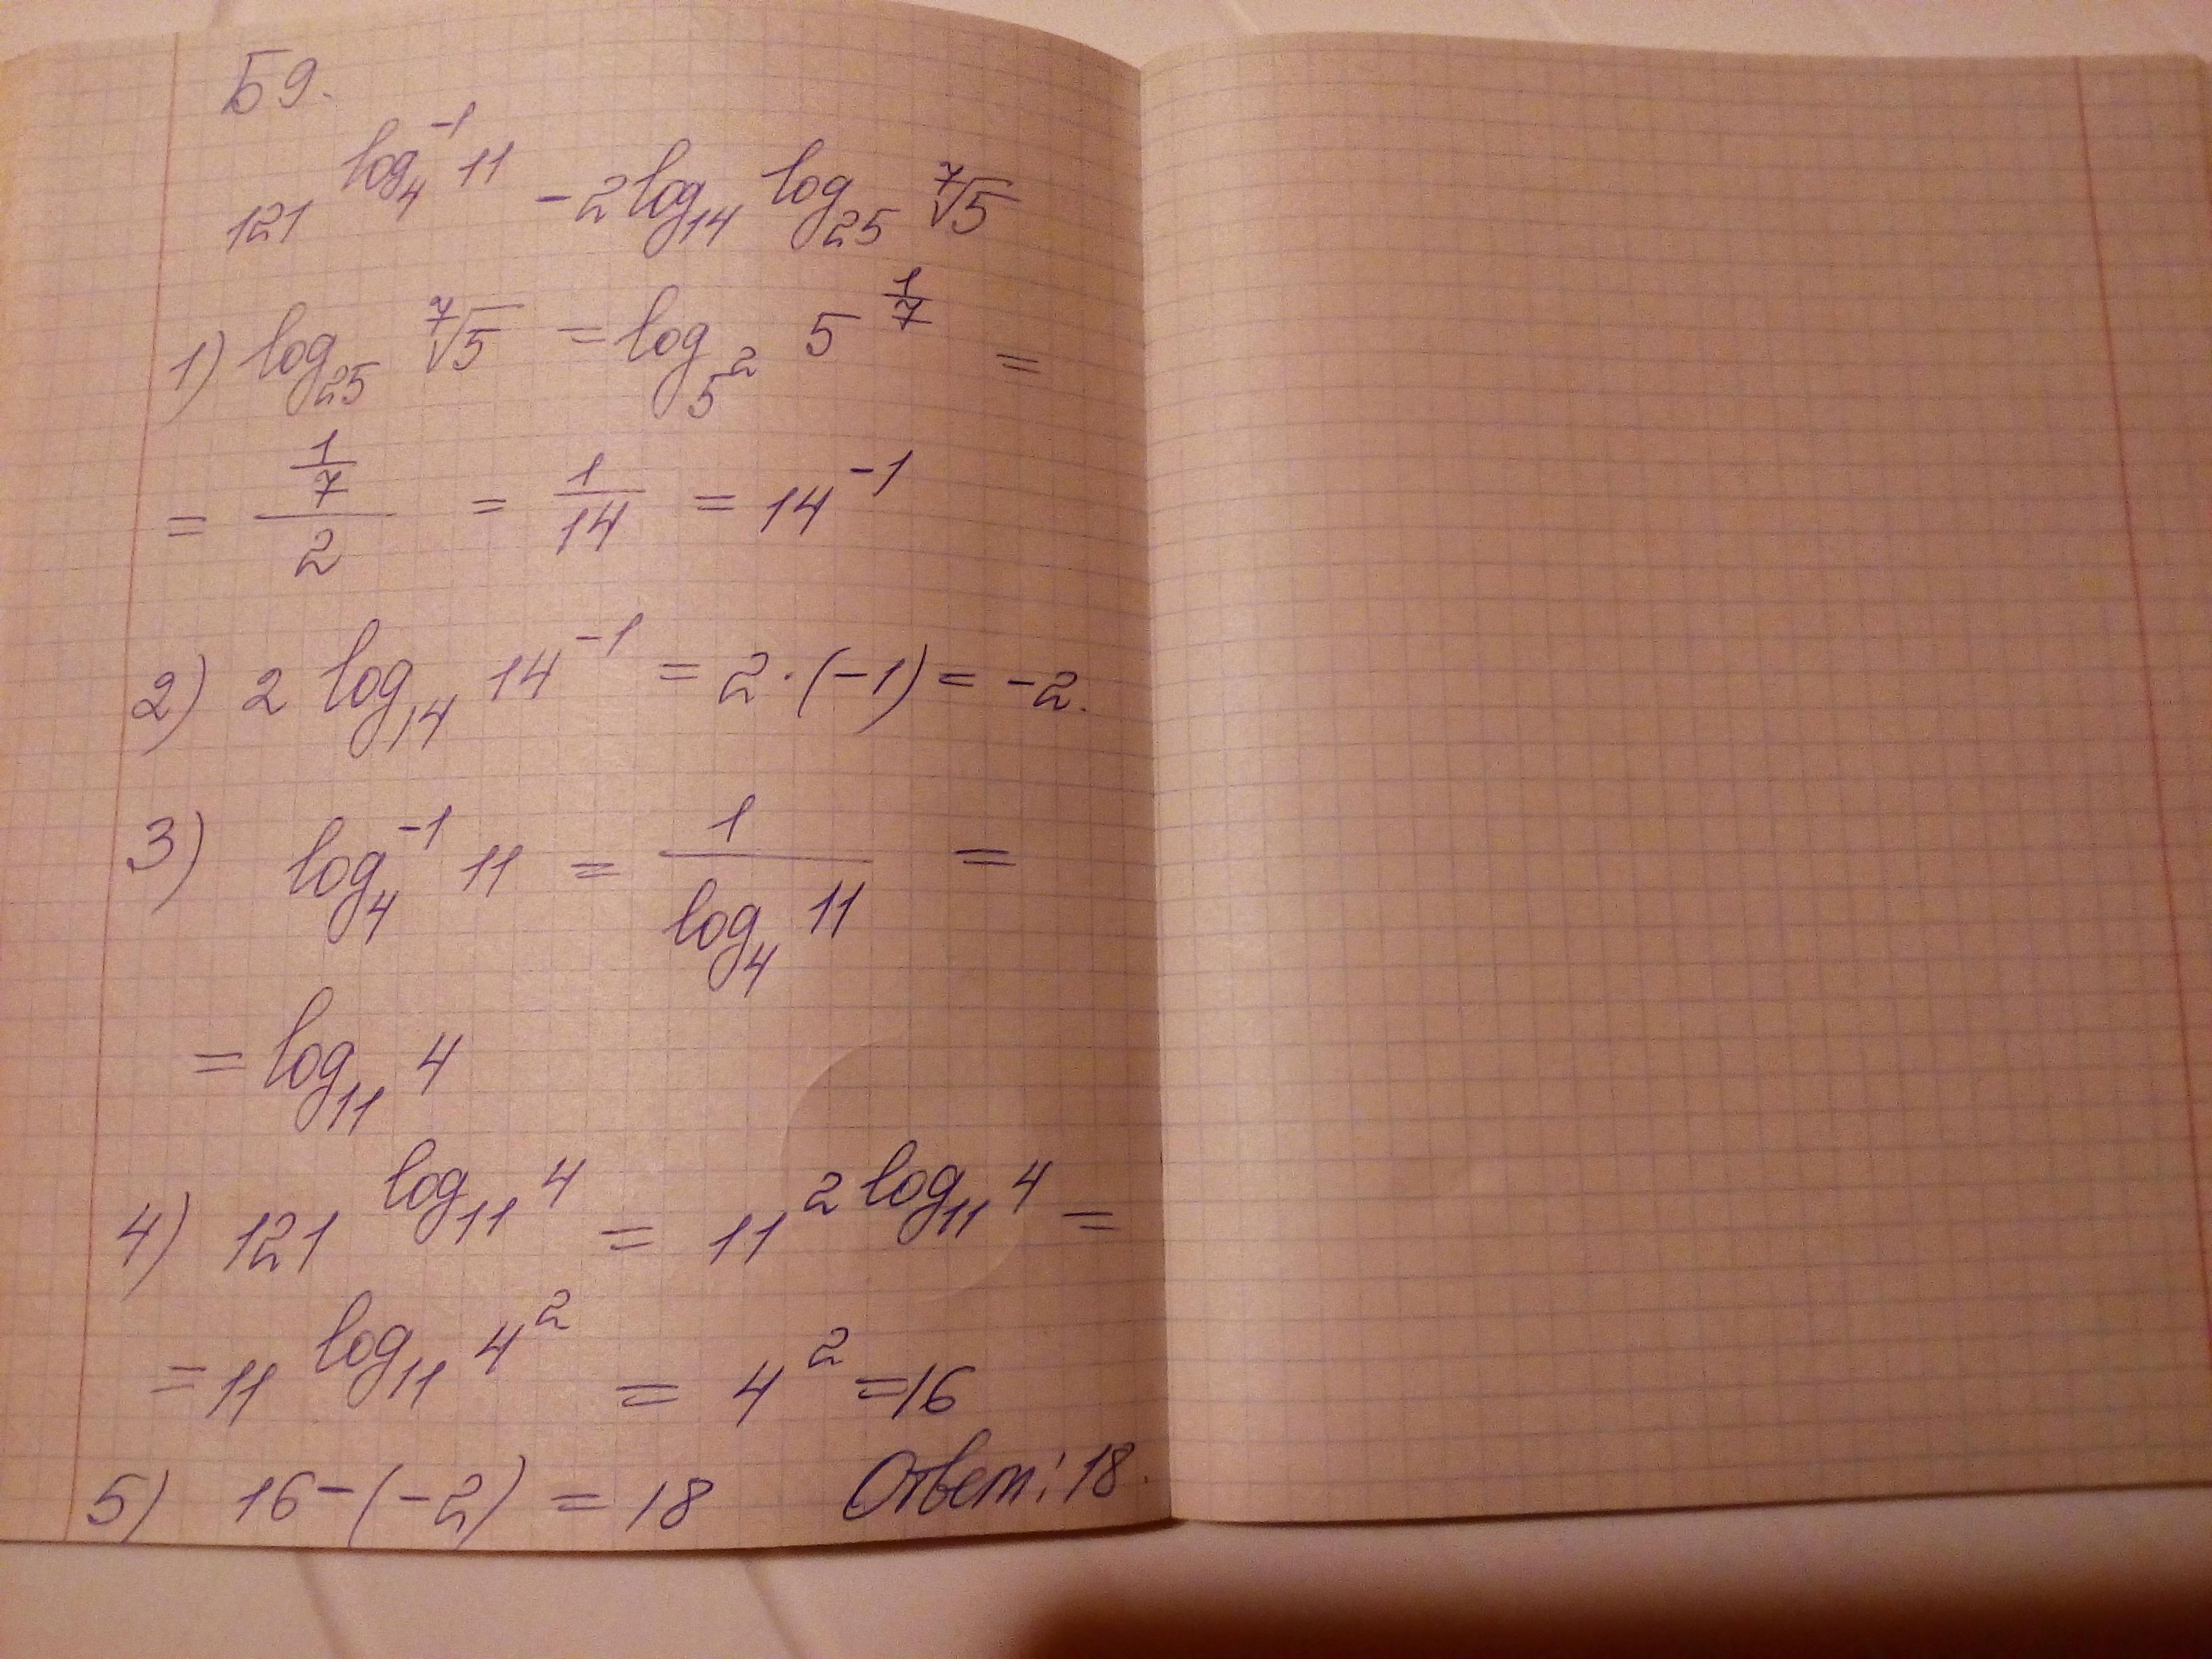 Б9.
121^(log₄⁻¹ 11) - 2 log₁₄ log₂₅ ⁷√5
1) log₂₅ ⁷√5 = log_(5²) 5^(1/7) =
= (1/7)/2 = 1/14 = 14⁻¹
2) 2 log₁₄ 14⁻¹ = 2·(-1) = -2.
3) log₄⁻¹ 11 = 1/(log₄ 11) =
= log₁₁ 4
4) 121^(log₁₁ 4) = 11^(2 log₁₁ 4) =
= 11^(log₁₁ 4²) = 4² = 16
5) 16-(-2) = 18 Ответ: 18.